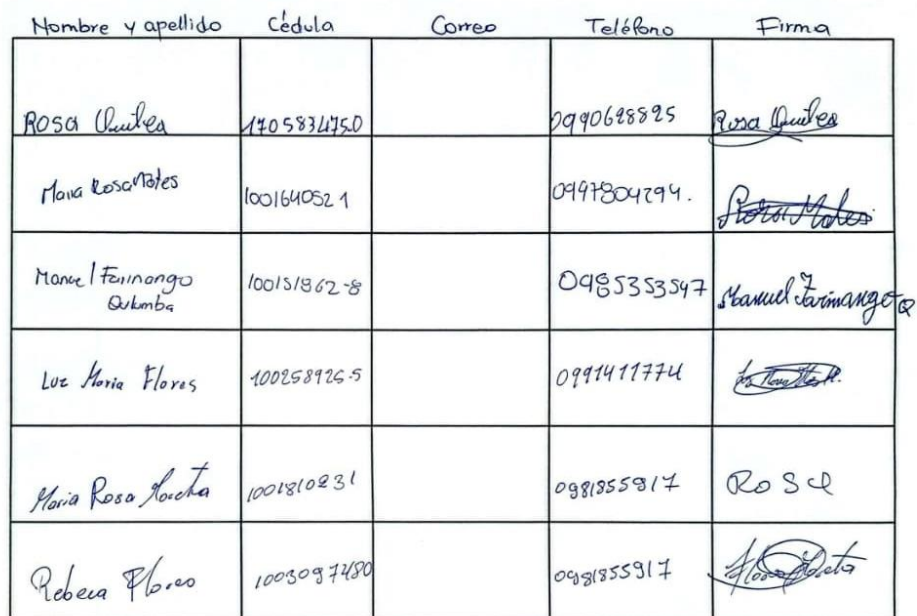 Nombre y apellido Cédula Correo Teléfono Firma
Rosa Quilca 1705834750 0990628825 Rosa Quilca
Maria Rosa Mates 1001640521 0997804294. Rosa Mates
Manuel Farinango Qulumba 100151962-8 0985353547 Manuel Farinango Q
Luz Maria Flores 100258925-5 0991411774
Maria Rosa 1001810231 0981855917 Rosa
Rebeca Flores 1003097480 0981855917